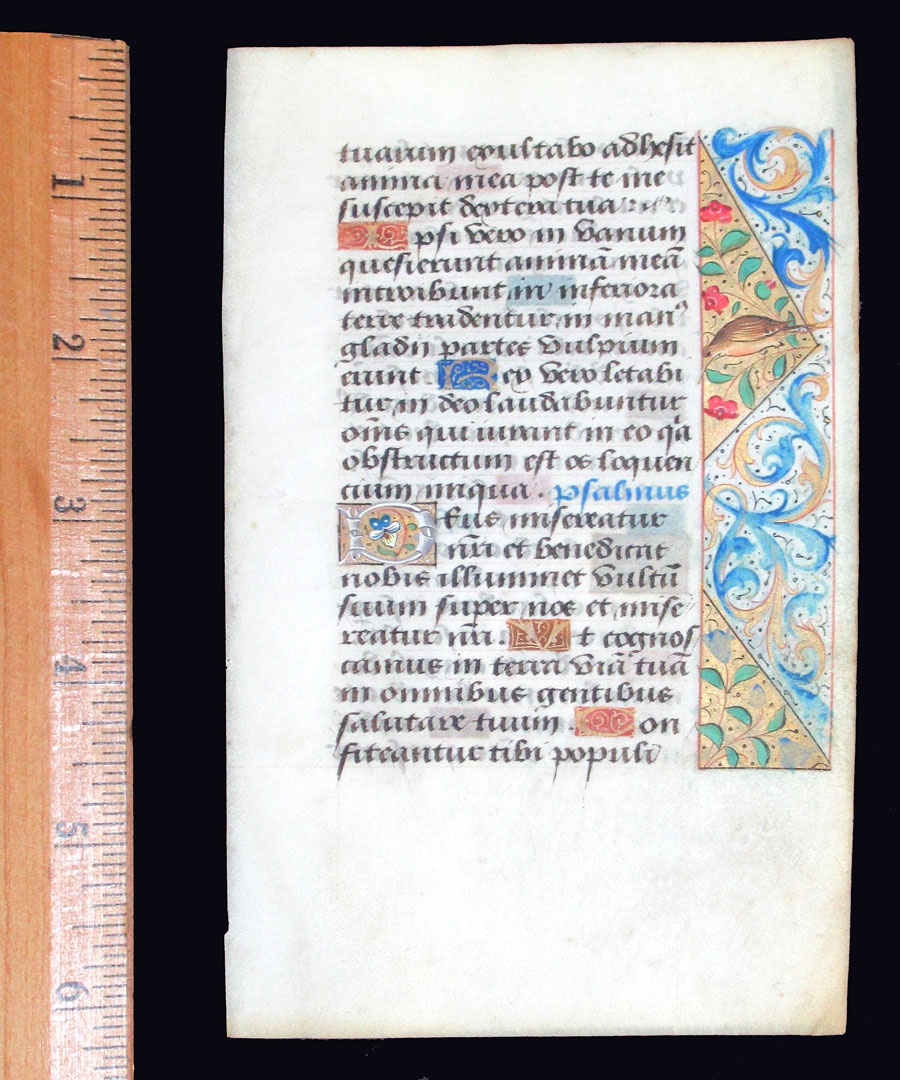 tuarum exultabo adhesit
anima mea post te me
suscepit dextera tua
Ipsi vero in vanum
quesierunt animā meā
introibunt in inferiora
terre tradentur in manꝰ
gladii partes vulpium
erunt Rex vero letabi
tur in deo laudabuntur
oms̄ qui iurant in eo qā
obstructum est os loquen
cium iniqua. psalmus
DEus misereatur
nr̄i et benedicat
nobis illuminet vultū
suum super nos et mise
reatur nr̄i. Vt cognos
camus in terra viā tuā
in omnibus gentibus
salutare tuum. Con
fiteantur tibi populi
1
2
3
4
5
6